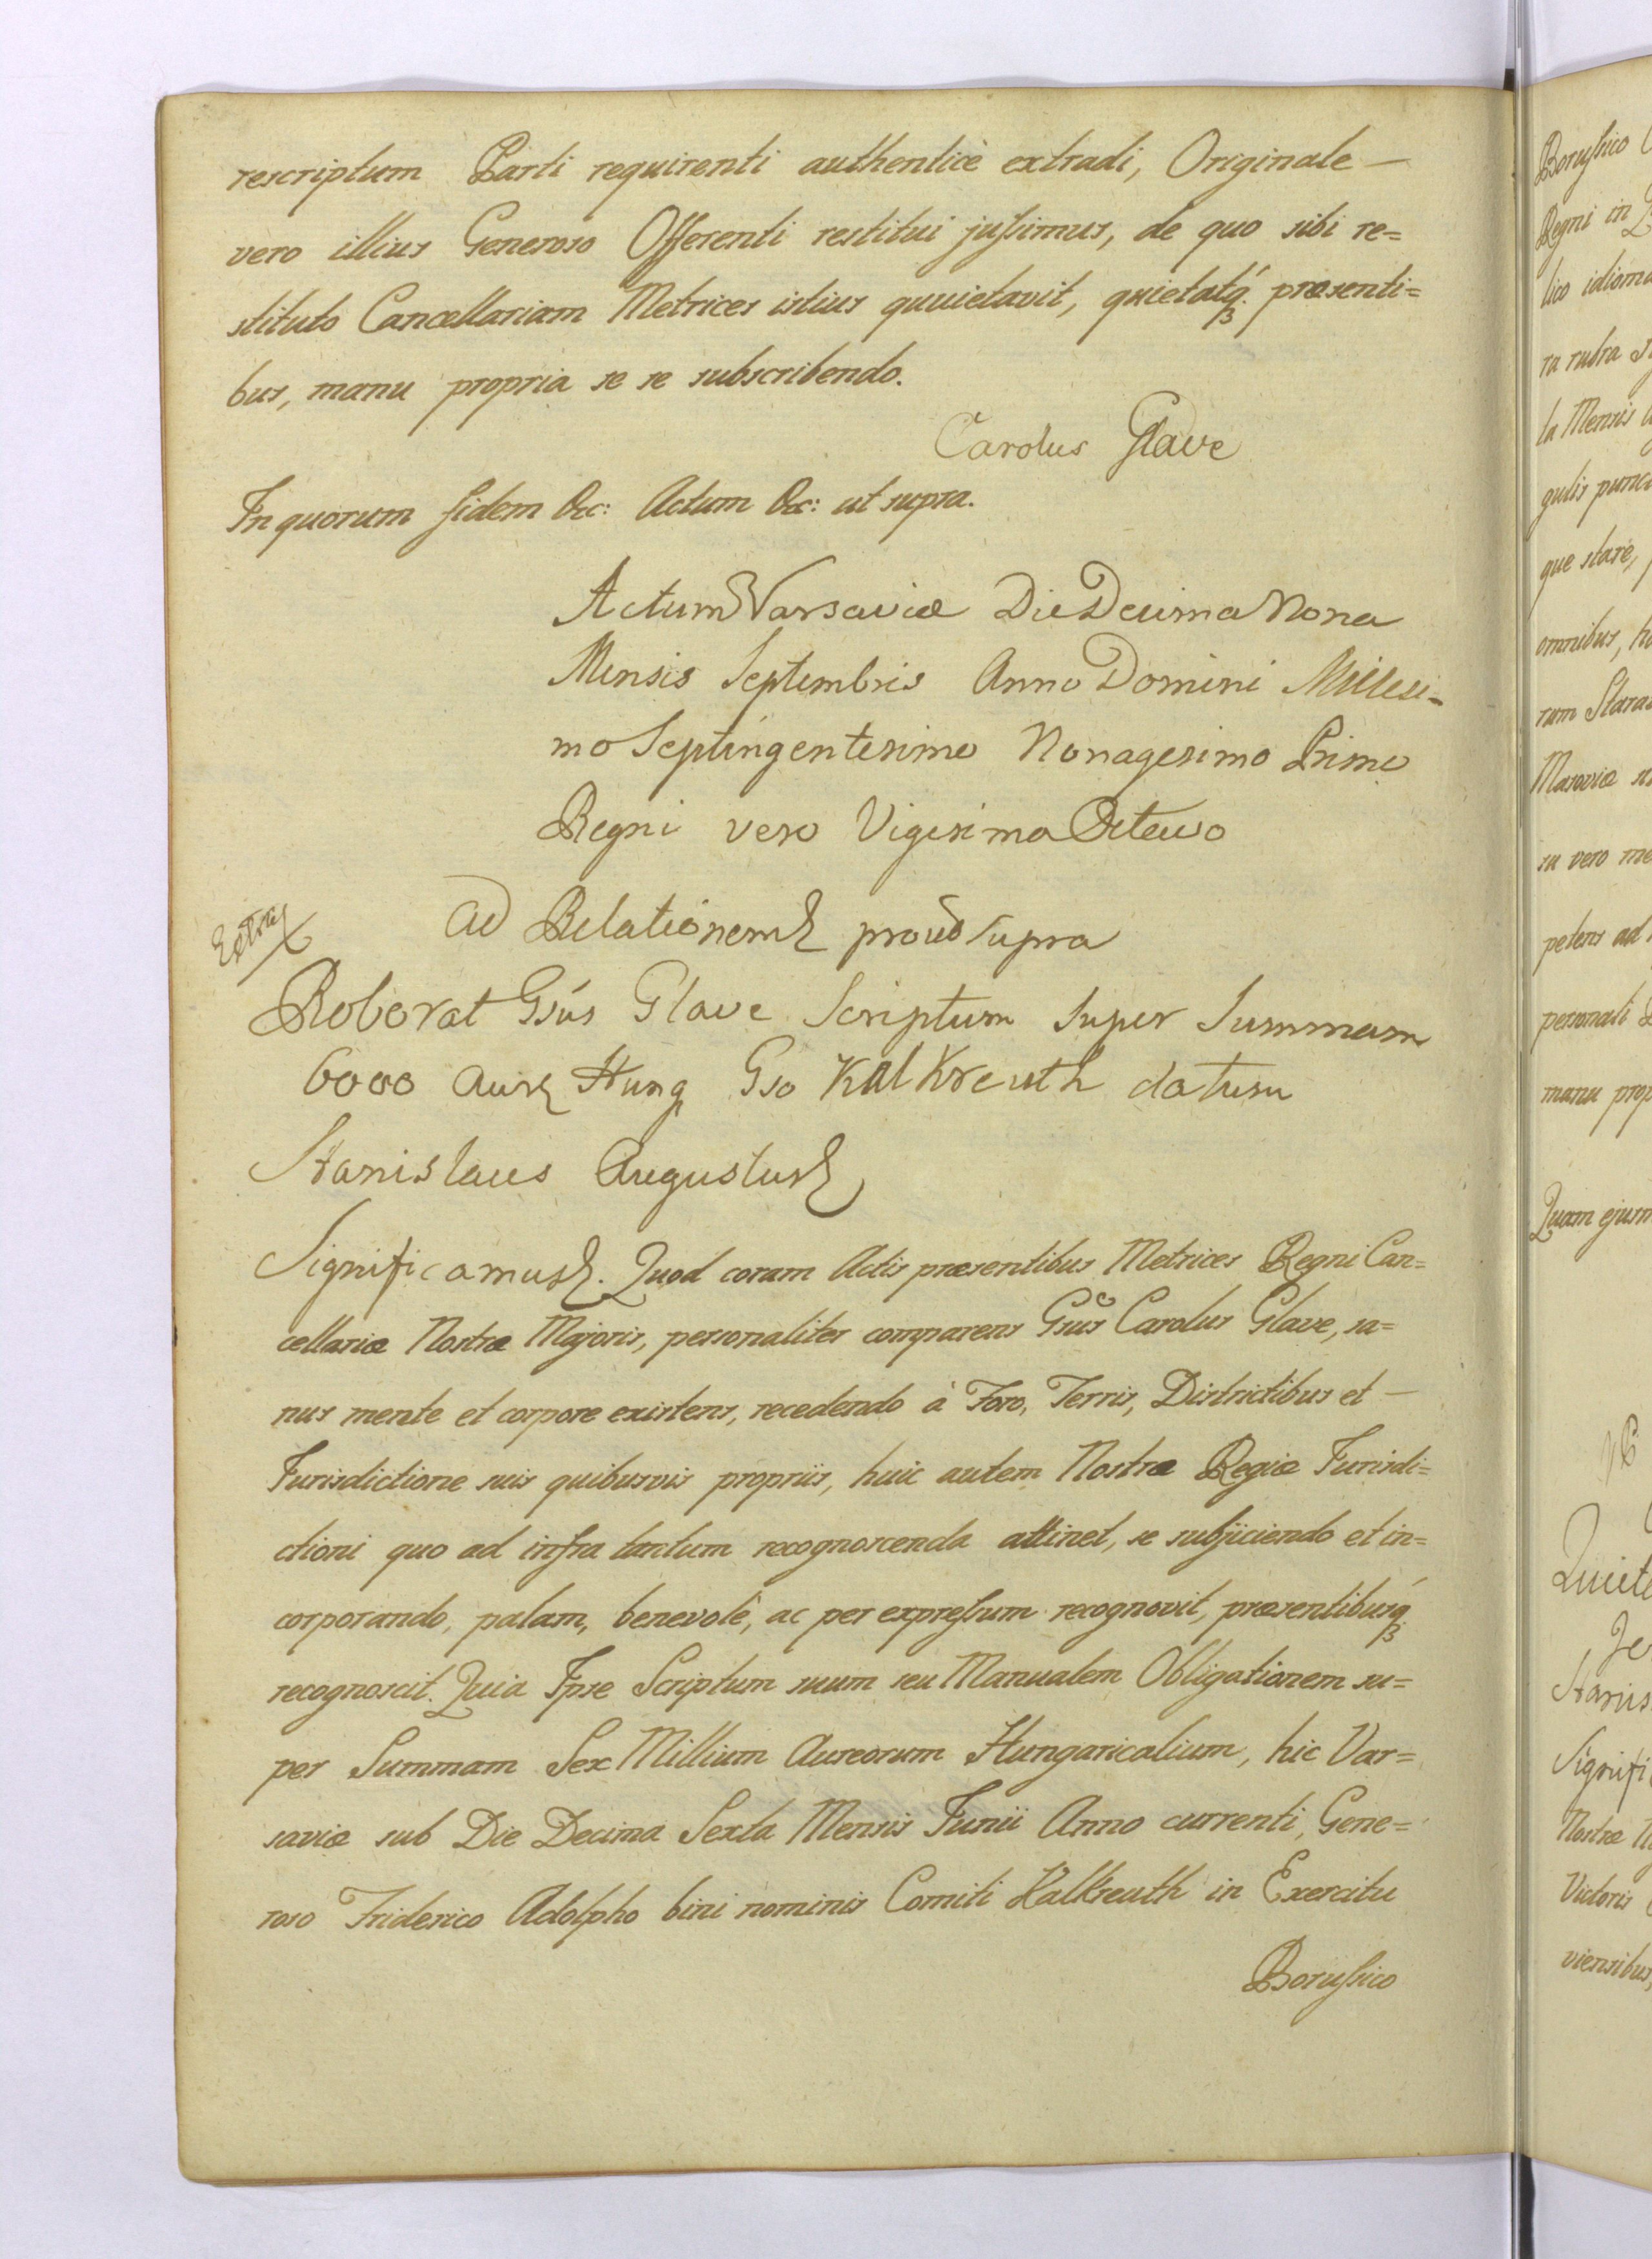 rescriptum Parti requirenti authenticè extradi, Originale —
vero illius Generoso Offerenti restitui jussimus, de quo sibi re=
stituto Cancellariam Metrices istius quuietavit, quietatq́ꝫ præsenti=
bus, manu propria se se subscribendo.
Carolus Glave
In quorum fidem &c: Actum &c: ut supra.
Actum Varsaviæ Die Decima Nona
Mensis Septembris Anno Domini Millesi-
mo Septingentesimo Nonagesimo Primo
Regni vero Vigesimo Octavo
Ad Relationem& prout supra
Extra&
Roborat Gsús Glave Scriptum super Summam
6000 Aur& Hung Gso Kalkreuth datum
Stanislaus Augustus&
Significamus&. Quod coram Actis præsentibus Metrices Regni Can=
cellariæ Nostræ Majoris, personaliter comparens Gsus Carolus Glave, sa=
nus mente et corpore existens, recedendo à Foro, Terris, Districtibus et —
Jurisdictione suis quibusvis propriis, huic autem Nostræ Regiæ Jurisdi=
ctioni quo ad infra tantum recognoscenda attinet, se subjiciendo et in=
corporando, palam, benevolè, ac per expressum recognovit, præsentibusq́ꝫ
recognoscit. Quia Ipse Scriptum suum seu Manualem Obligationem su=
per Summam Sex Millium Aureorum Hungaricalium, hic Var=
saviæ sub Die Decima Sexta Mensis Junii Anno currenti, Gene=
roso Friderico Adolpho bini nominis Comiti Kalkreuth in Exercitu
Borussico
Borussico
Regni in
lico idioma
ra rubra
la Mensis
gulis
que stare,
omnibus,
rum
Masoviæ
su vero me
petens ad
personali
manu prop
Quam ejusm
Quiet
Stanis
Signifi
Nostræ
Victoris
viensibus,